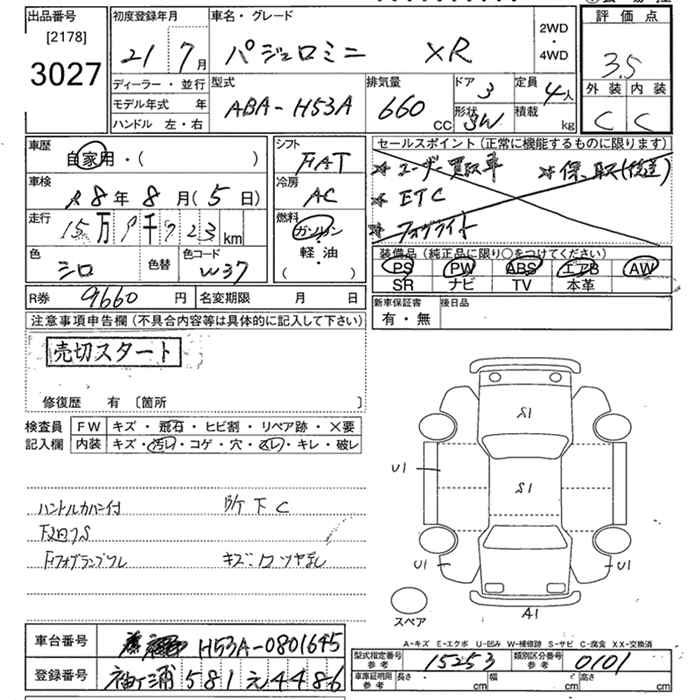 出品番号
[2178]
3027
初度登録年月
21 7月
車名・グレード
パジェロミニ XR
2WD
・
4WD
評価点
3.5
外装 内装
C C
ディーラー・並行
モデル年式 年
ハンドル 左・右
型式
ABA-H53A
排気量
660 cc
ドア 3
形状 SW
定員 4人
積載 kg
車歴
自家用・( )
車検
R8年8月(5日)
走行
15万9千723km
色
シロ
色替
色コード
W37
シフト
FAT
冷房
AC
燃料
ガソリン
・
軽油
( ・ )
セールスポイント(正常に機能するものに限ります)
ユーザー買取車
ETC
フォグライト
装備品(純正品に限り○をつけてください)
PS PW ABS エアB AW
SR ナビ TV 本革
R券 9660円
名変期限 月 日
新車保証書
有・無
後日品
注意事項申告欄(不具合内容等は具体的に記入して下さい)
売切スタート
修復歴 有〔箇所 〕
検査員
記入欄
FW キズ・飛石・ヒビ割・リペア跡・X要
内装 キズ・汚レ・コゲ・穴・スレ・キレ・破レ
ハンドルカバー付
下C
S1
S1
U1
U1
U1
A1
スペア
車台番号 H53A-0801645
登録番号 袖ヶ浦 581 え 4486
A-キズ E-エクボ U-凹み W-補修跡 S-サビ C-腐食 XX-交換済
型式指定番号
参考
15253
類別区分番号
参考
0101
車庫証明用
参考
長さ cm
幅 cm
高さ cm